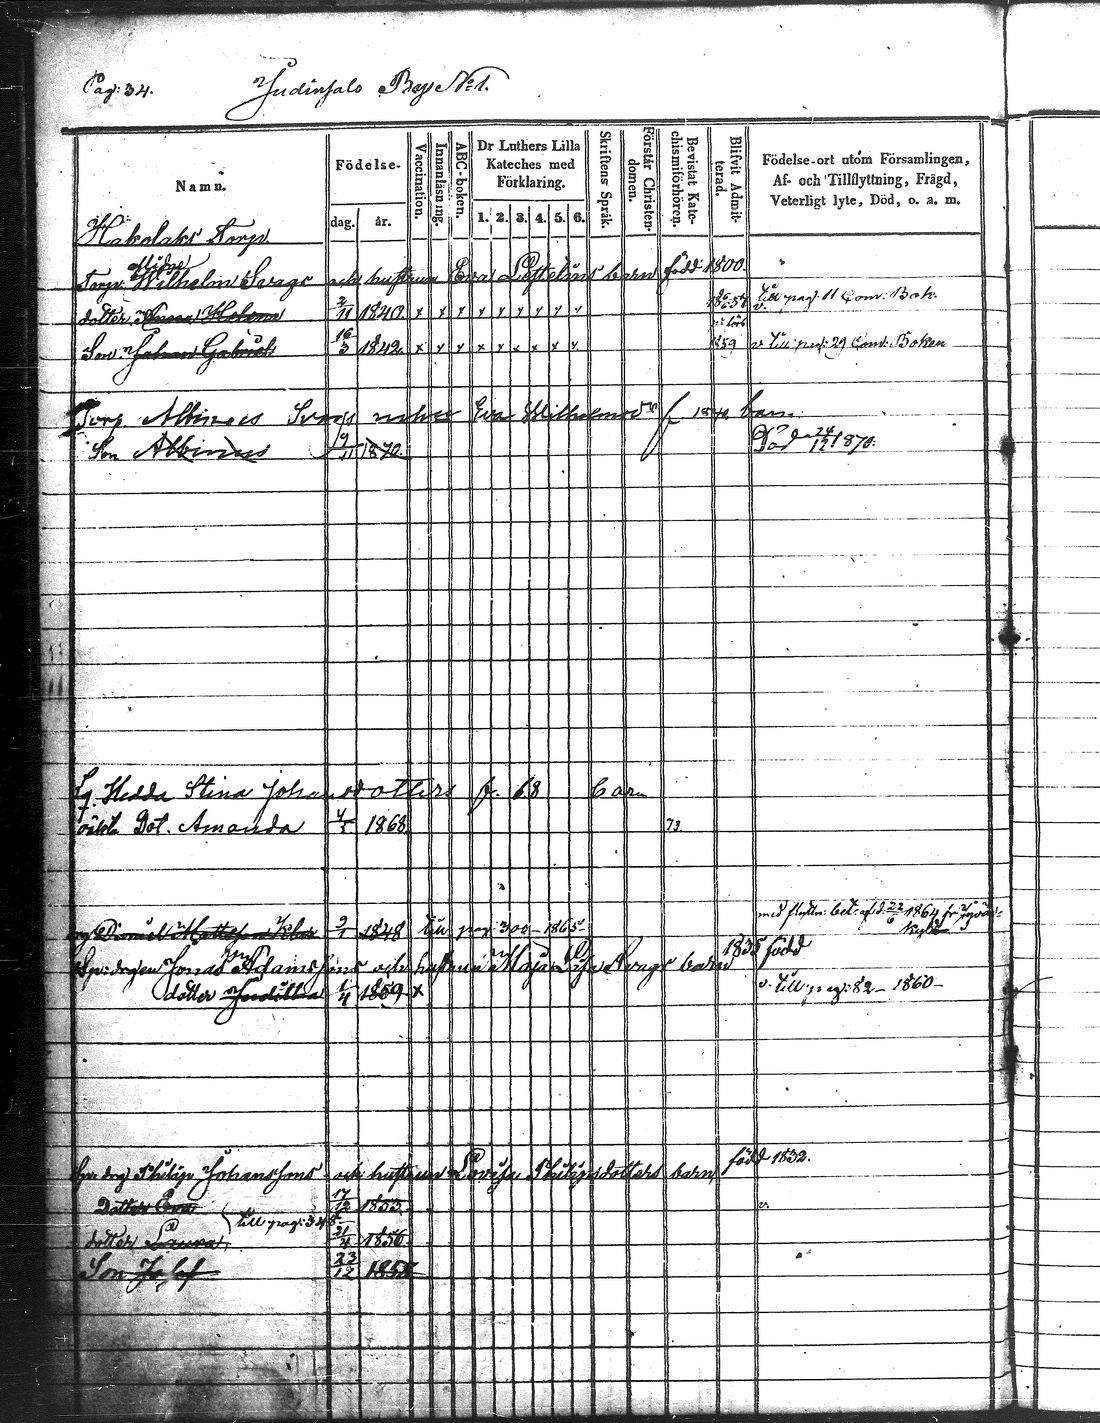 Pag: 34.
Judinsalo By No 1.
Namn.
Födelse-
dag.
år.
Vaccination.
Innanläsning.
ABC-boken.
Dr Luthers Lilla Kateches med Förklaring.
1. 2. 3. 4. 5. 6.
Skriftens Språk.
Förstår Christendomen.
Bevistat Katechismiförhören.
Blifvit Admitterad.
Födelse-ort utom Församlingen,
Af- och Tillflyttning, Frägd,
Veterligt lyte, Död, o. a. m.
Hakolaks Torp.
Torp: Wilhelm Svags och hustrun Eva barn född 1800.
dotter Anna Helena 2/11 1840 x x x x x x x x x v. till pag: 11 Com: Bok.
Son Johan Gabriel 16/3 1842 x x x x x x x x x 1859 v. till pag: 29 Com: Boken
Torp. Albinus Svags Eva Wilhelmsdr f 1840 barn
Son Albinus 9/11 1870. Död 24/12 1870.
Hedda Stina Johansdotters f. 68 barn
oäkt. Dot. Amanda 4/5 1868 73.
2/1 1848 till pag 300 - 1865 med flyttn: bet: af d. 22/6 1864 fr.
Jonas Adamssons och hustrun Maja Lisa Svags barn 1835 född
dotter 1/4 1859 x v. till pag: 82 - 1860 -
Johanssons och hustrun Lovisa Philipsdotters barn född 1832.
Dotter Eva 17/12 1853
till pag: 348
dotter Laura 21/4 1856
Son Josef 23/12 1858